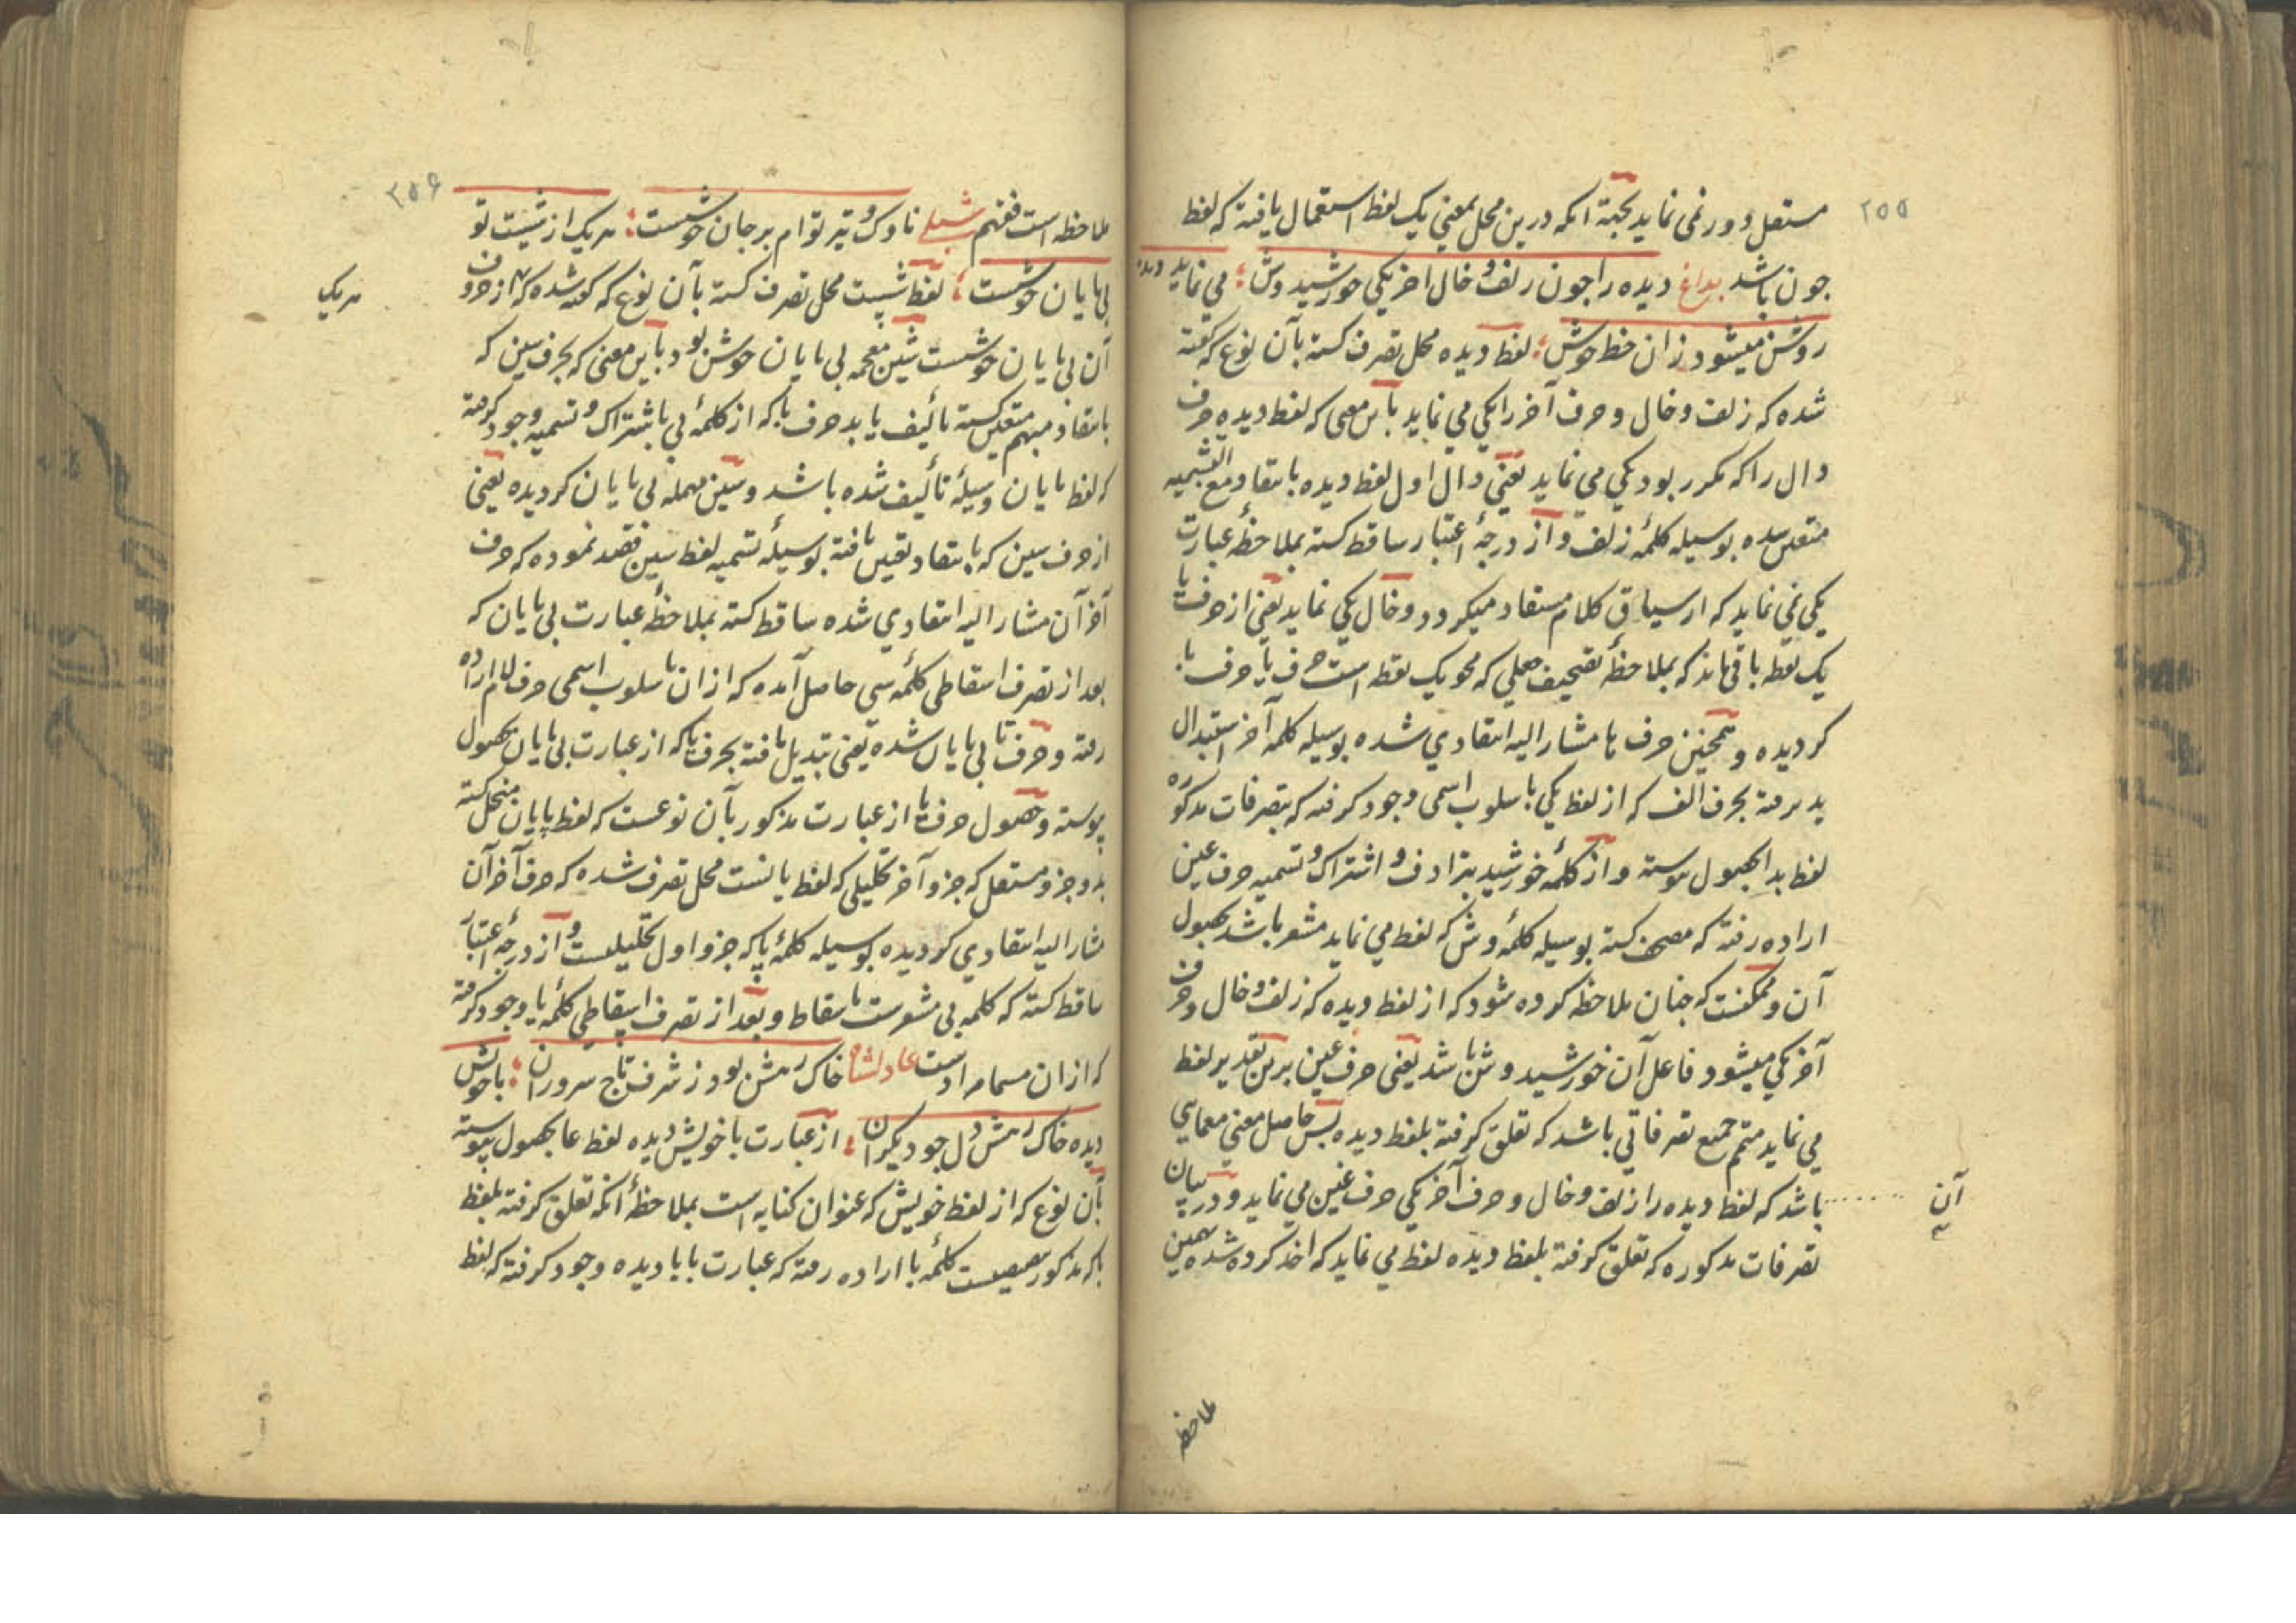 ۲۵۵
مستقل دور نمی نماید بجهة آنکه درین محل بمعنی یک لفظ استعمال یافته که لفظ
چون باشد بداغ دیده را چون زلف و خال اخر یکی خورشیدوش ؛ می نماید دیده
روشن میشود زان خط خوش ؛ لفظ دیده محل تصرف کشته بآن نوع که گفته
شده که زلف و خال و حرف آخر را یکی می نماید باین معنی که لفظ دیده حرف
دال را که مکرر بود یکی می نماید یعنی دال اول لفظ دیده بانتقاد مع التسمیه
متعین شده بوسیله کلمهٔ زلف و از درجهٔ اعتبار ساقط کشته بملاحظهٔ عبارت
یکی نمی نماید که از سیاق کلام مستفاد میکردد و خال یکی نماید یعنی از حرف یا
یک نقطه باقی ماند که بملاحظهٔ تصحیف جعلی که محو یک نقطه است حرف یا حرف با
کردیده و همچنین حرف ها مشار الیه انتقادی شده بوسیله کلمه آخر استبدال
پذیرفته بحرف الف که از لفظ یکی باسلوب اسمی وجود کرفته که بتصرفات مذکوره
لفظ بدا بحصول پیوسته و از کلمهٔ خورشید بترادف و اشتراک و تسمیه حرف عین
اراده رفته که مصحف کشته بوسیله کلمهٔ وش که لفظ می نماید مشعر باشد بحصول
آن و ممکنست که چنان ملاحظه کرده شود که از لفظ دیده که زلف و خال و حرف
آخر یکی میشود فاعل آن خورشید وش باشد یعنی حرف عین برین تقدیر لفظ
می نماید متمم جمیع تصرفاتی باشد که تعلق کرفته بلفظ دیده پس حاصل معنی معمایی
آن
باشد که لفظ دیده را زلف و خال و حرف آخر یکی حرف غین می نماید و در بیان
تصرفات مذکوره که تعلق کرفته بلفظ دیده لفظ می نماید که اخذ کرده شده همین
ملاحظه
۲۵۶
ملاحظه است فافهم شبلی ناوک و تیر توام بر جان خوشست ؛ هریک از شست تو
بی پایان خوشست ؛ لفظ شست محل تصرف کشته بآن نوع که گفته شده که هر از حروف
هریک
آن بی پایان خوشست شین معجمه بی پایان خوش بود باین معنی که بحرف سین که
بانتقاد مبهم متعین کشته تألیف یابد حرف با که از کلمهٔ بی باشتراک و تسمیه وجود کرفته
که لفظ پایان وسیلهٔ تألیف شده باشد و سین مهمله بی پایان کردیده یعنی
از حرف سین که بانتقاد تعیین یافته بوسیلهٔ تسمیه لفظ سین قصد نموده که حرف
آخر آن مشار الیه انتقادی شده ساقط کشته بملاحظهٔ عبارت بی پایان که
بعد از تصرف اسقاطی کلمهٔ سی حاصل آمده که از ان باسلوب اسمی حرف لام اراده
رفته و حرف تا بی پایان شده یعنی تبدیل یافته بحرف یا که از عبارت بی پایان بحصول
پیوسته و حصول حرف یا از عبارت مذکور بآن نوعست که لفظ پایان منحل کشته
بدو جزو مستقل که جزو آخر تحلیلی که لفظ یانست محل تصرف شده که حرف آخر آن
مشار الیه انتقادی کردیده بوسیله کلمهٔ پا که جزو اول تحلیلیست و از درجهٔ اعتبار
ساقط کشته که کلمه بی مشعرست باسقاط و بعد از تصرف اسقاطی کلمهٔ یا وجود کرفته
که ازان مسما مرادست عادلشاه خاک رهش بود ز شرف تاج سروران ؛ با خوش
دیده خاک رهش دل چو دیکران ؛ از عبارت با خویش دیده لفظ عا بحصول پیوسته
بآن نوع که از لفظ خویش که عنوان کنایه است بملاحظهٔ آنکه تعلق کرفته بلفظ
با که مذکور کلمهٔ با اراده رفته که عبارت با با دیده وجود کرفته که لفظ